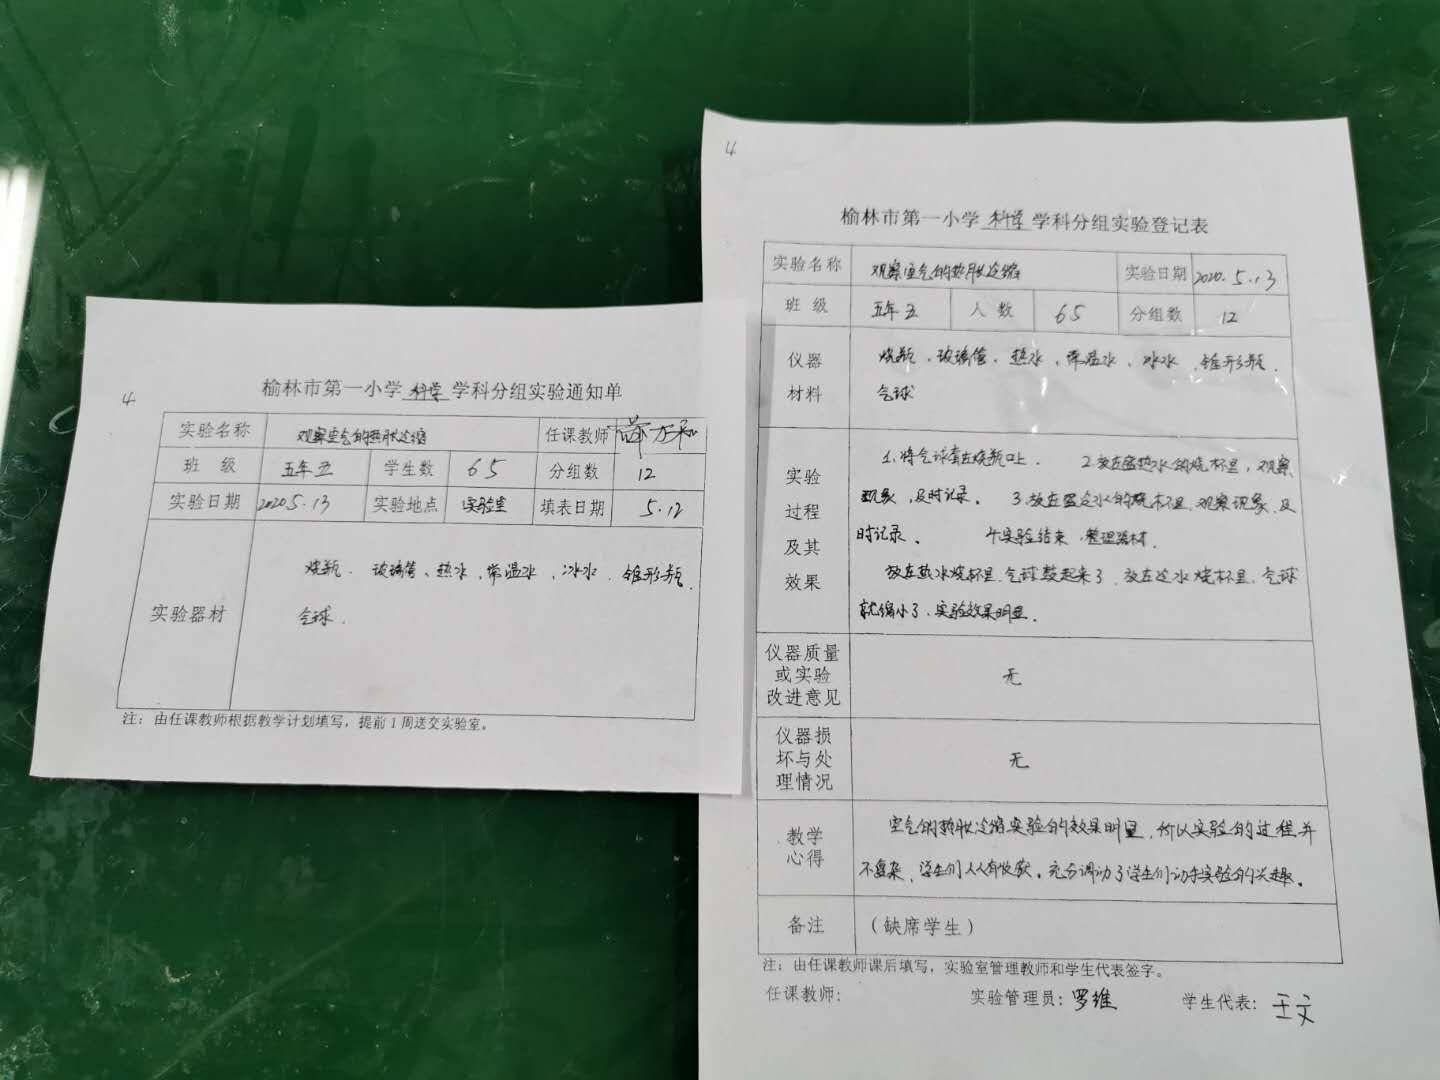 4
榆林市第一小学 科学 学科分组实验通知单
实验名称 观察空气的热胀冷缩 任课教师
班 级 五年五 学生数 65 分组数 12
实验日期 2020 5.13 实验地点 实验室 填表日期 5.12
实验器材
烧瓶、玻璃管、热水,常温水,冰水、锥形瓶、
气球.
注:由任课教师根据教学计划填写,提前1周送交实验室。
4
榆林市第一小学 科学 学科分组实验登记表
实验名称 观察空气的热胀冷缩 实验日期 2020.5.13
班 级 五年五 人 数 65 分组数 12
仪器
材料
烧瓶、玻璃管、热水、常温水、冰水、锥形瓶.
气球
实验
过程
及其
效果
1.将气球套在烧瓶口上. 2.放在盛热水的烧杯里,观察
现象,及时记录。 3.放在盛冷水的烧杯里,观察现象,及
时记录。 4.实验结束,整理器材.
放在热水烧杯里,气球鼓起来了,放在冷水烧杯里,气球
就缩小了,实验效果明显.
仪器质量
或实验
改进意见
无
仪器损
坏与处
理情况
无
教学
心得
空气的热胀冷缩实验的效果明显,所以实验的过程并
不复杂,学生们人人有收获。充分调动了学生们动手实验的兴趣。
备注 (缺席学生)
注:由任课教师课后填写,实验室管理教师和学生代表签字。
任课教师: 实验管理员:罗维 学生代表:王文